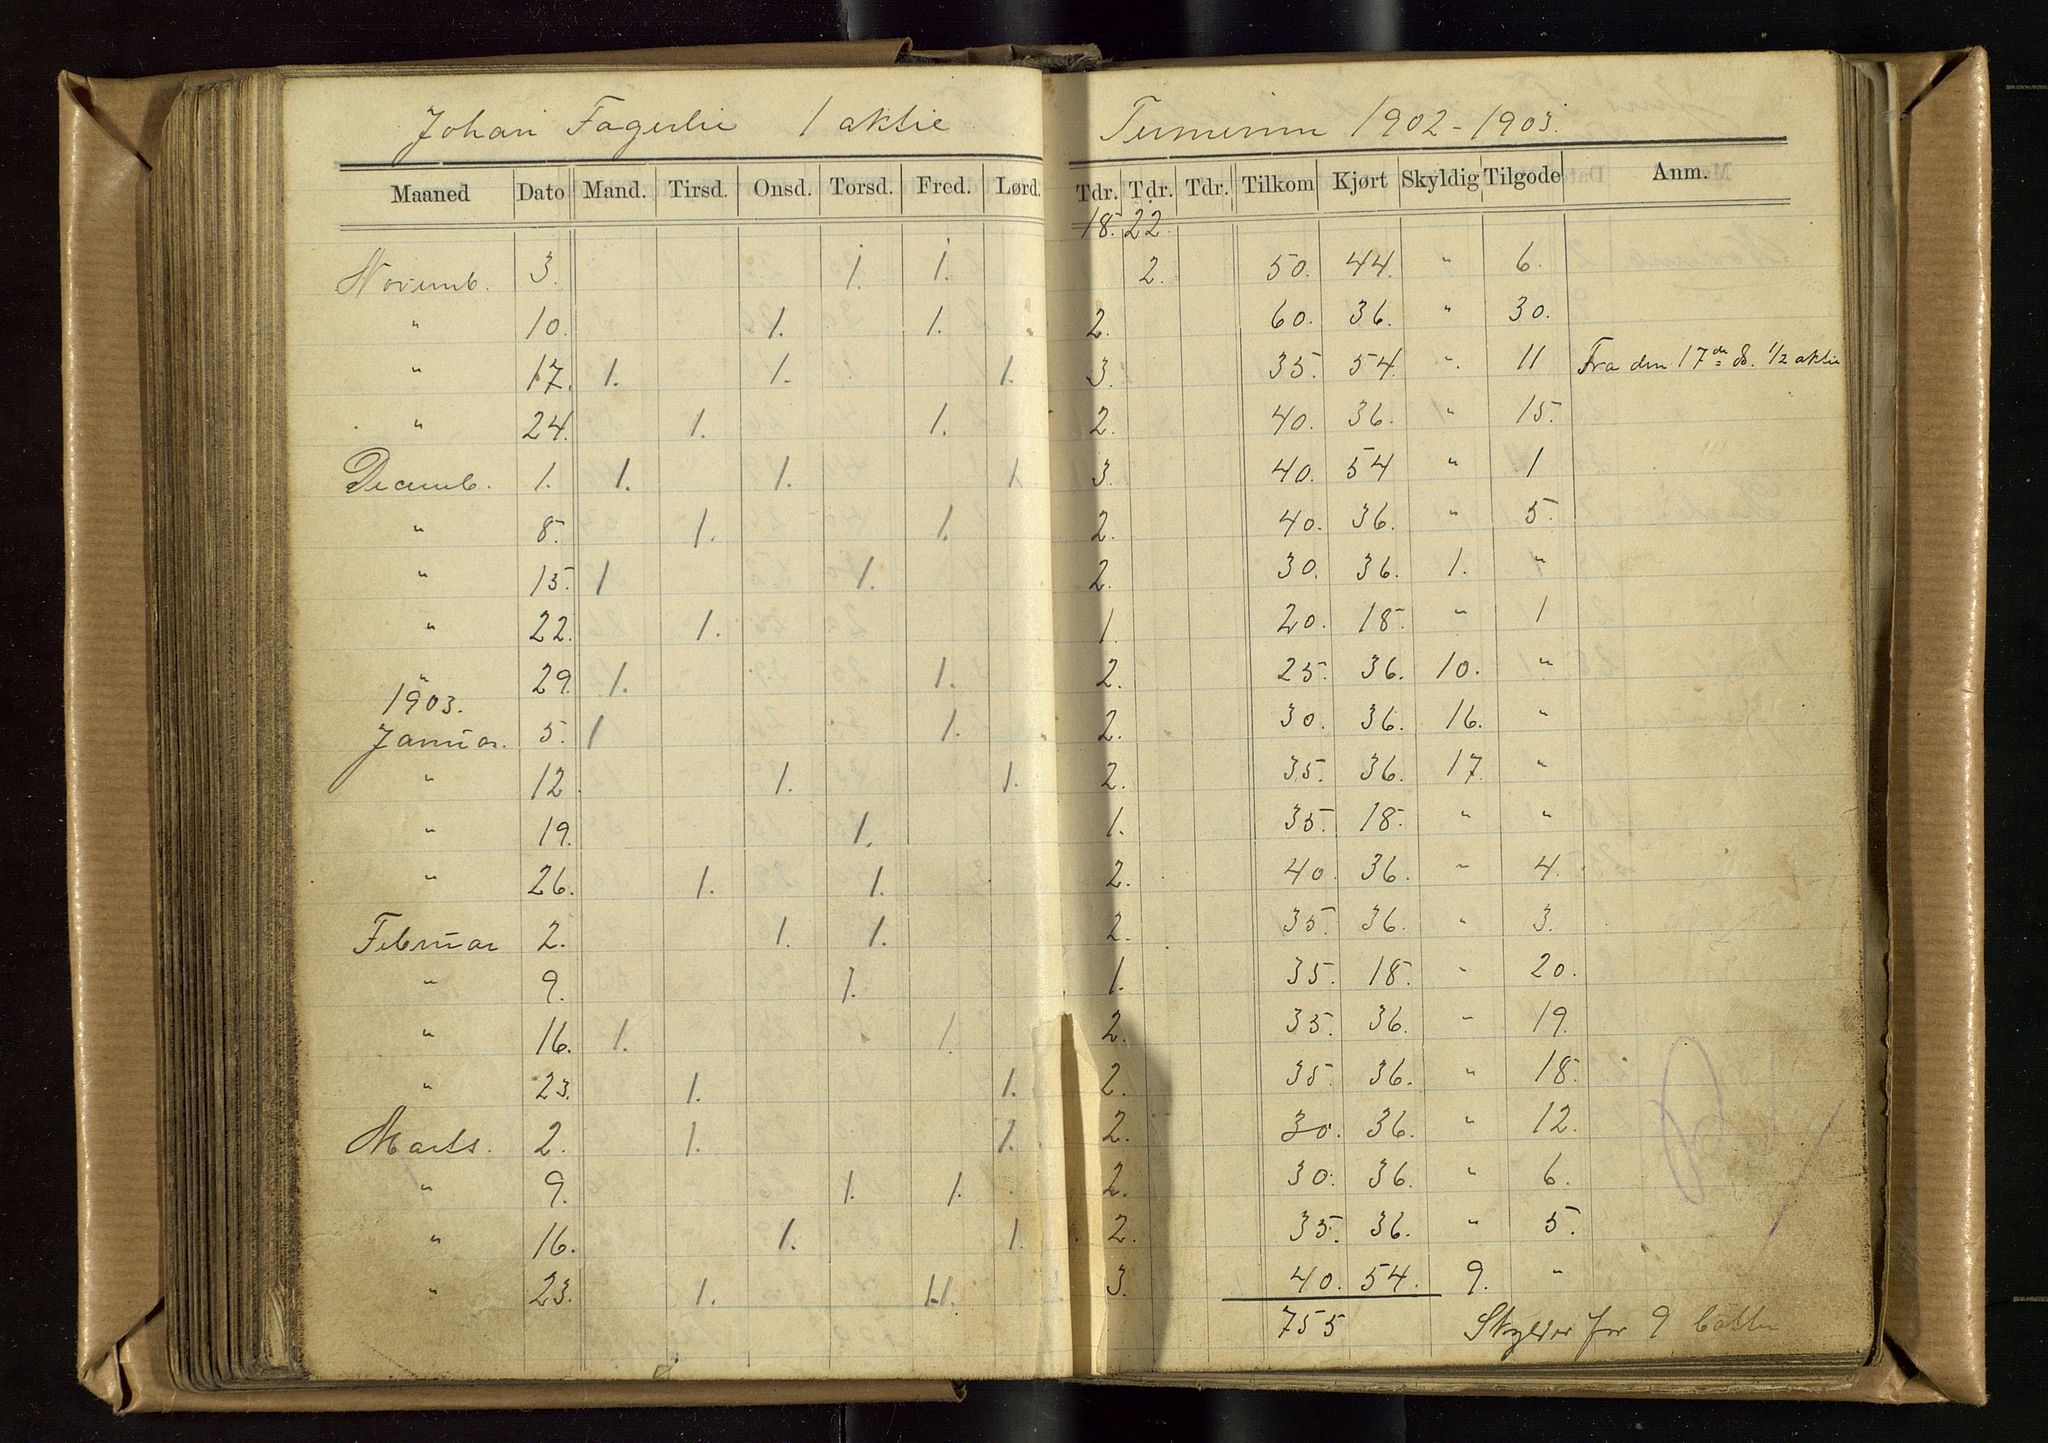 Johan Fagerlie 1 aktie Terminen 1902-1903.
Maaned Dato Mand. Tirsd. Onsd. Torsd. Fred. Lørd. Tdr. Tdr. Tdr. Tilkom Kjørt Skyldig Tilgode Anm.
18. 22.
Novemb. 3. 1. 1. 2. 50. 44. " 6.
" 10. 1. 1. 2. 60. 36. " 30.
" 17. 1. 1. 1. 3. 35. 54. " 11 Fra den 17de ds. 1/2 aktie
" 24. 1. 1. 2. 40. 36. " 15.
Decemb. 1. 1. 1. 1. 3. 40. 54 " 1
" 8. 1. 1. 2. 40. 36. " 5.
" 15. 1 1. 2. 30. 36. 1. "
" 22. 1. 1. 20. 18. " 1
" 29. 1. 1. 2. 25. 36. 10. "
1903.
Januar. 5. 1 1. 2. 30. 36. 16. "
" 12. 1. 1. 2. 35. 36. 17. "
" 19. 1. 1. 35. 18. " "
" 26. 1. 1. 2. 40. 36. " 4.
Februar 2. 1. 1. 2. 35. 36. " 3.
" 9. 1. 1. 35. 18. " 20.
" 16. 1. 1. 2. 35. 36. " 19.
" 23. 1. 1. 2. 35. 36. " 18.
Marts. 2. 1. 1. 2. 30. 36. " 12.
" 9. 1. 1. 2. 30. 36. " 6.
" 16. 1. 1. 2. 35. 36. " 5.
" 23. 1. 11. 3. 40. 54. 9. "
755 Skylder for 9